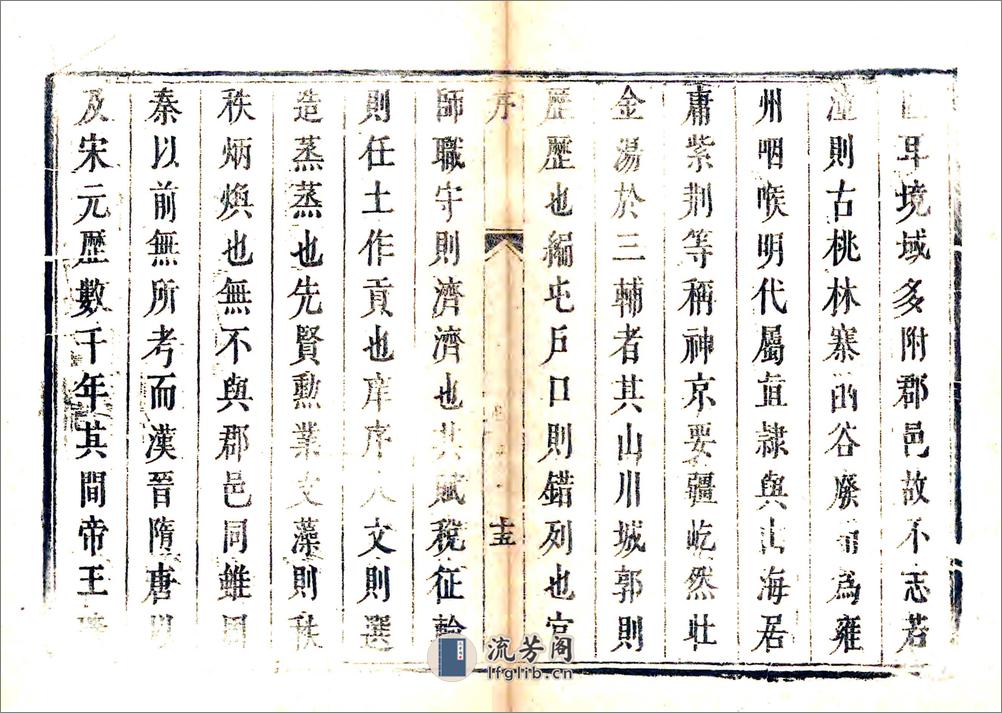 耳境域多附郡邑故不志若
潼則古桃林寨函谷廢而爲雍
州咽喉明代屬直隸與山海居
庸紫荆等稱神京要疆屹然壯
金湯於三輔者其山川城郭則
歷歷也編屯戶口則錯列也官
序
十五
師職守則濟濟也其賦稅征輸
則任土作貢也庠序人文則選
造蒸蒸也先賢勲業文藻則秩
秩炳煥也無不與郡邑同雖周
秦以前無所考而漢晉隋唐以
及宋元歷數千年其間帝王
流芳阁
lfglib.cn